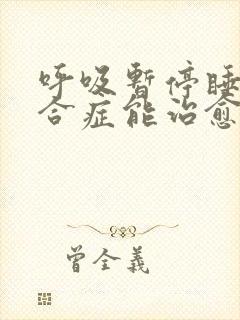 呼吸暫停睡
合症能治愈
曾全義